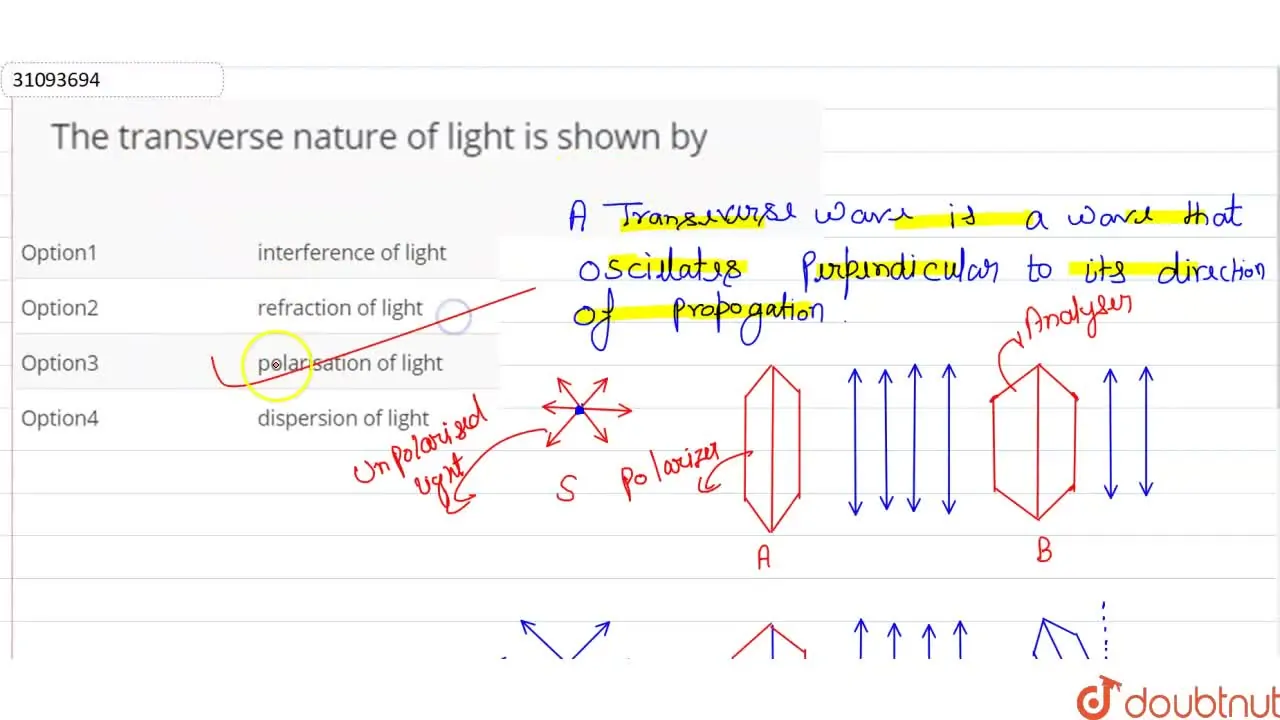 31093694
The transverse nature of light is shown by
A Transverse wave is a wave that
oscillates perpendicular to its direction
of propogation.
Option1 interference of light
Option2 refraction of light
Option3 polarisation of light
Option4 dispersion of light
Analyser
Unpolarised
light
S
Polarizer
A
B
doubtnut